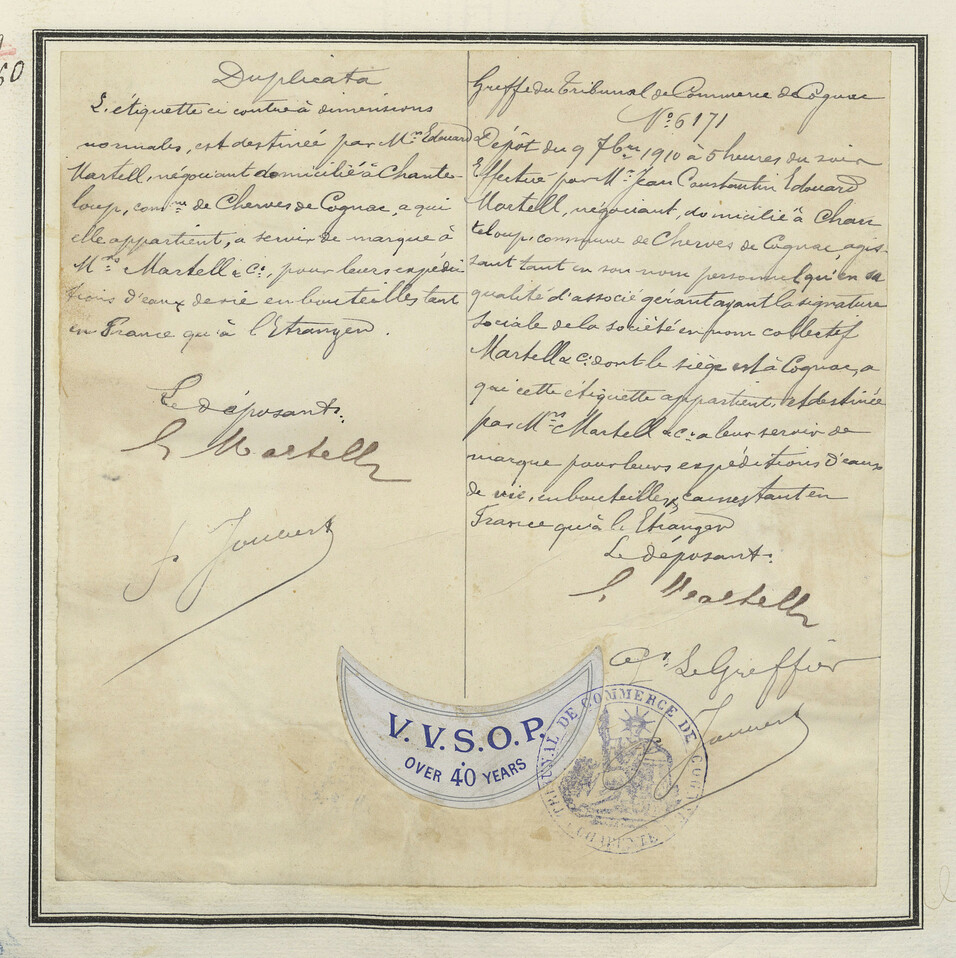 Duplicata
L'étiquette ci contre à dimensions
normales, est destinée par Mr. Edouard
Martell, négociant domicilié à Chante-
loup, comne de Cherves de Cognac, a qui
elle appartient, a servir de marque à
Mrs Martell & Cie, pour leurs expédi
tions d'eaux de vie en bouteilles tant
en France qu'à l'Etranger.
Le déposant:
E Martell
Jouvert
Greffe du Tribunal de Commerce de Cognac
No. 6171
Dépôt du 9 7bre 1910 à 5 heures du soir
Effectué par Mr. Jean Constantin Edouard
Martell, négociant, domicilié à Chan
teloup, commune de Cherves de Cognac, agis-
sant tant en son nom personnel qu'en sa
qualité d'associé gérant ayant la signature
sociale de la société en nom collectif
Martell & Cie dont le siège est à Cognac, a
qui cette étiquette appartient, est destinée
par Mrs Martell & Cie a leur servir de
marque pour leurs expéditions d'eaux
de vie, en bouteilles, caisses tant en
France qu'à l'Etranger
Le déposant:
E Martell
Le Greffier
Jouvert
V.V.S.O.P.
OVER 40 YEARS
TRIBUNAL DE COMMERCE DE COGNAC
CHARENTE